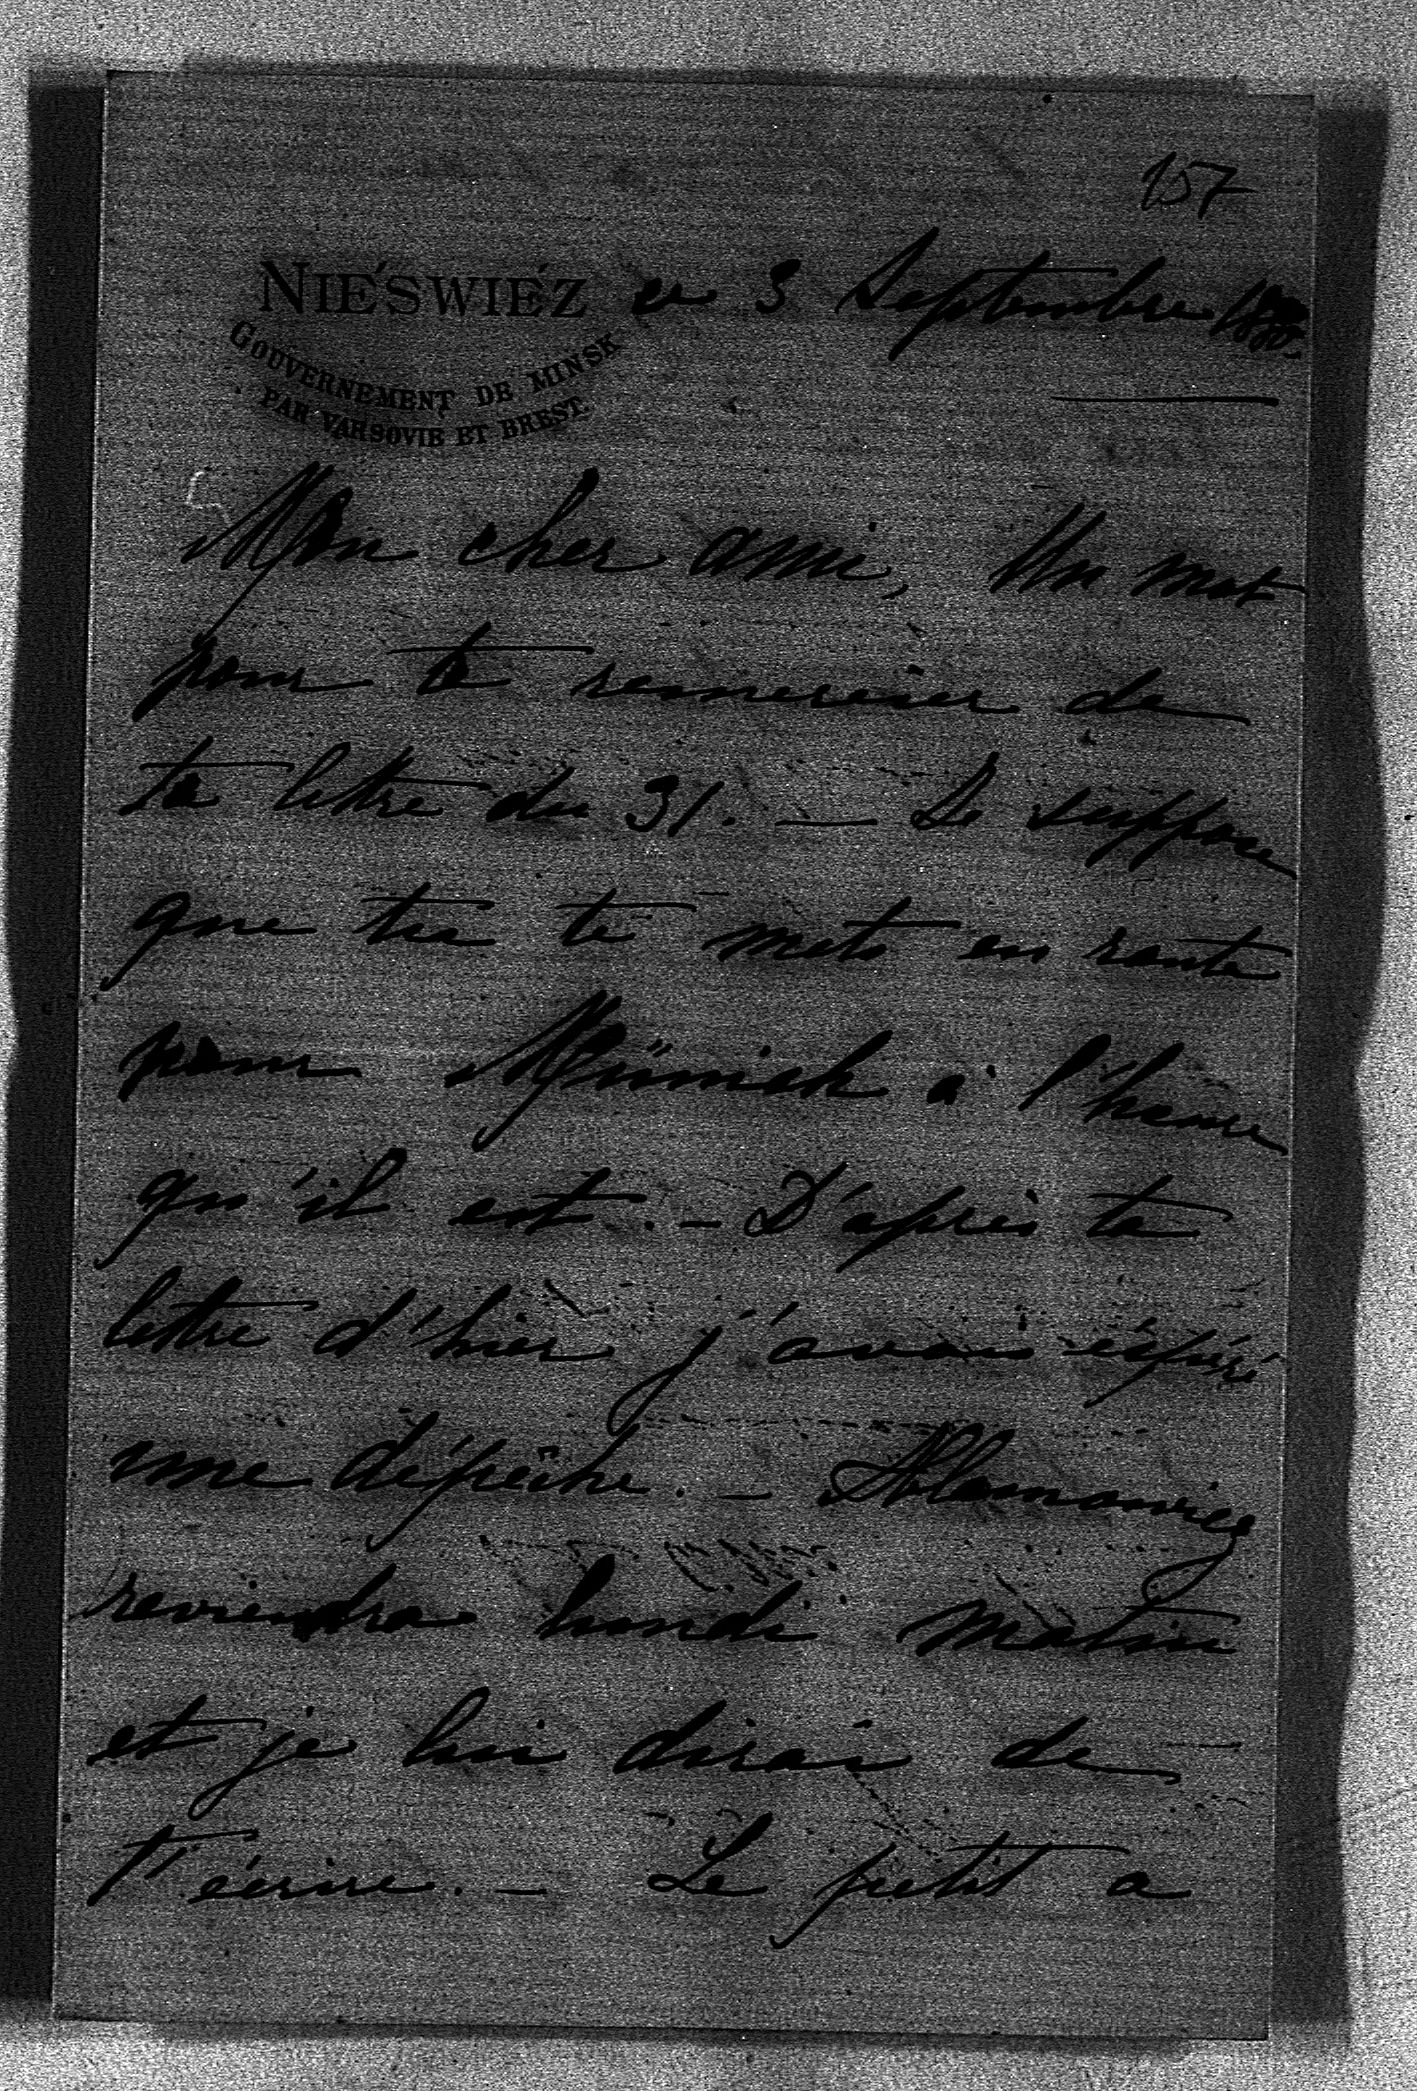 157
NIEŚWIEŻ ce 3 Septembre
GOUVERNEMENT DE MINSK
PAR VARSOVIE ET BREST.
Mon cher ami, Un mot
pour te remercier de
ta lettre du 31. — Je suppose
que tu te mets en route
pour Münich à l'heure
qu'il est. — D'après ta
lettre d'hier j'avais éspéré
une dépêche. —
reviendra lundi matin
et je lui dirai de —
t'écrire. — Le petit a